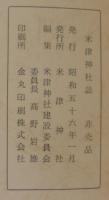 米津神社誌　非売品
発行　昭和五十六年一月
発行所　米津神社
編集　米津神社建設委員会
委員長　高野岩雄
印刷所　金丸印刷株式会社